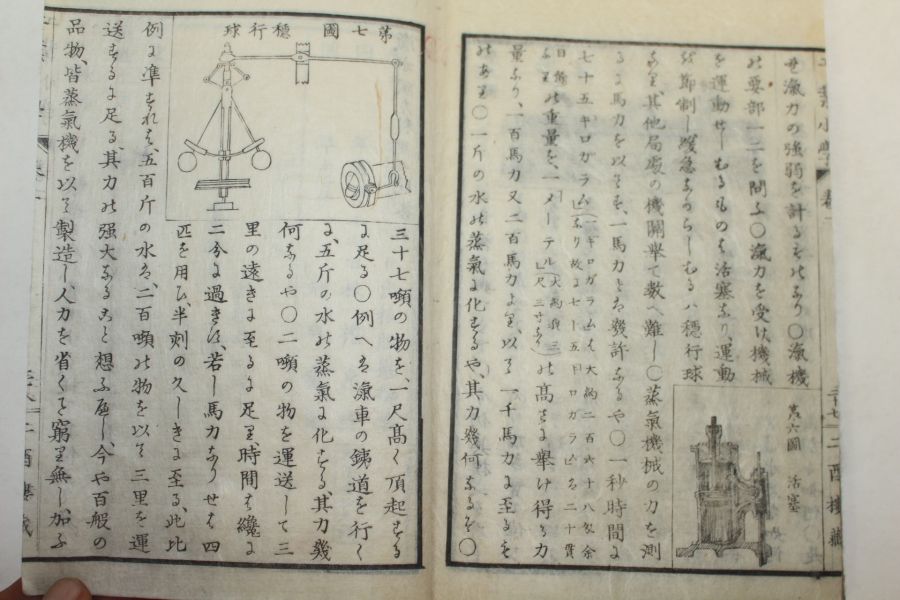 二酉樓藏
せ滊力の強弱を計るものなり〇滊機
の要部一二を問ふ〇滊力を受け、機械
を運動せしむるものは活塞なり、運動
を節制し緩急なからしむるハ穩行球
なり、其他局處の機關擧て数へ難し〇蒸氣機械の力を測
るに馬力を以てす、一馬力とは幾許なるや〇一秒時間に
七十五キロガラム
目餘の重量を、一メーテル(大約我三尺三寸なり)の高さに擧け得る力
量なり、一百馬力又二百馬力より、以て一千馬力に至るも
のあり〇一斤の水の蒸氣に化するや、其力幾何なるを〇
第六圖 活塞
第七圖 穩行球
三十七噸の物を、一尺高く頂起する
に足る〇例へは滊車の銕道を行く
に、五斤の水の蒸氣に化する、其力幾
何なるや〇二噸の物を運送して三
里の遠きに至るに足り、時間は纔に
二分に過きす、若し馬力ならせは四
匹を用ひ、半刻の久しきに至る、此比
例に準すれは、五百斤の水は、二百噸の物を以て三里を運
送するに足る、其力の強大なること想ふ可し、今や百般の
品物、皆蒸氣機を以て製造し、人力を省くこと窮り無し、加ふ